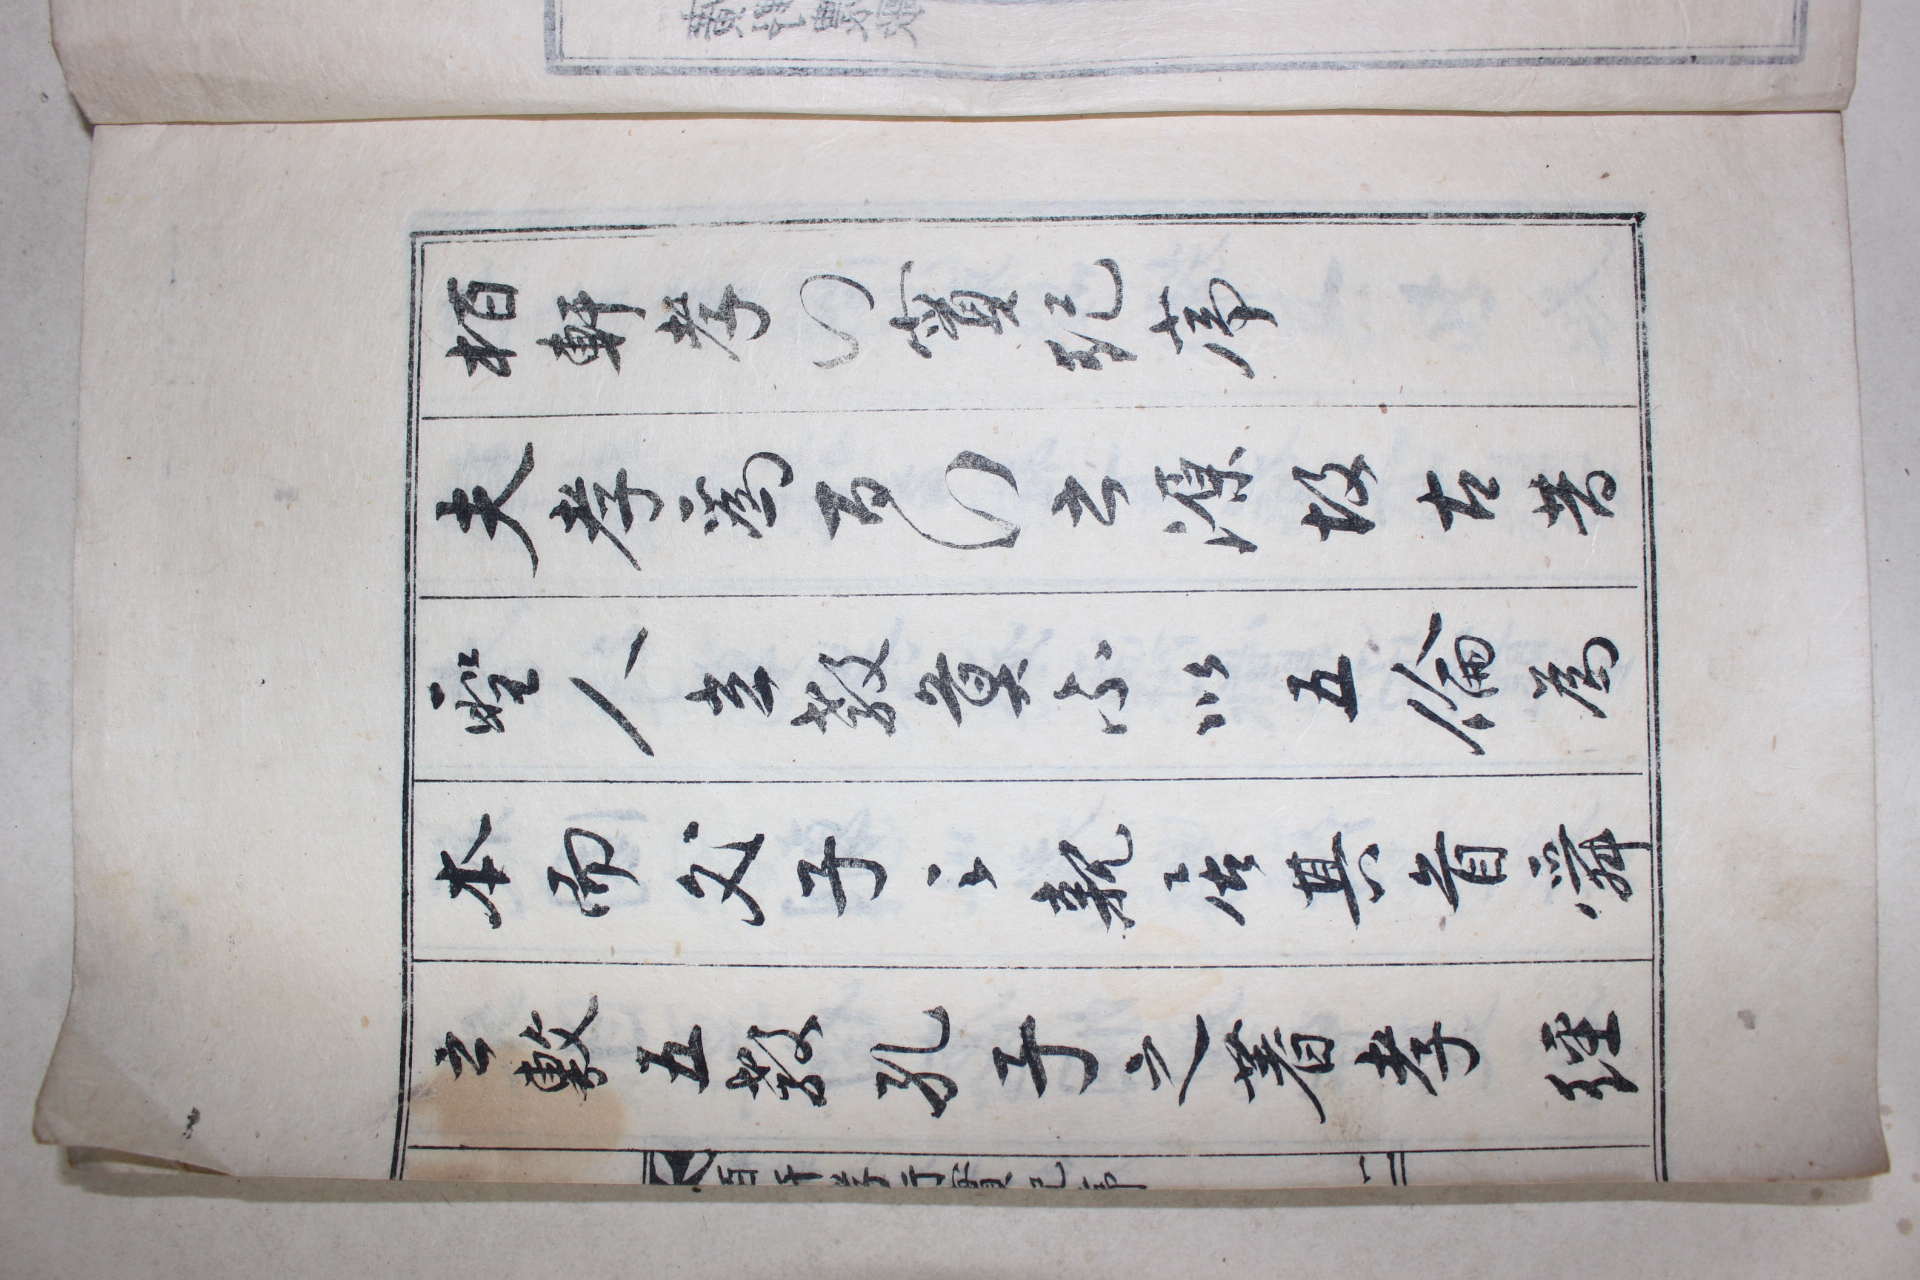 栢軒孝行實紀序
夫孝爲百行之源故古昔
聖人立教莫不以五倫爲
本而父子之親居其首舜
之敷五教孔子之著孝經
栢軒孝行實紀序
一
廣野農歌